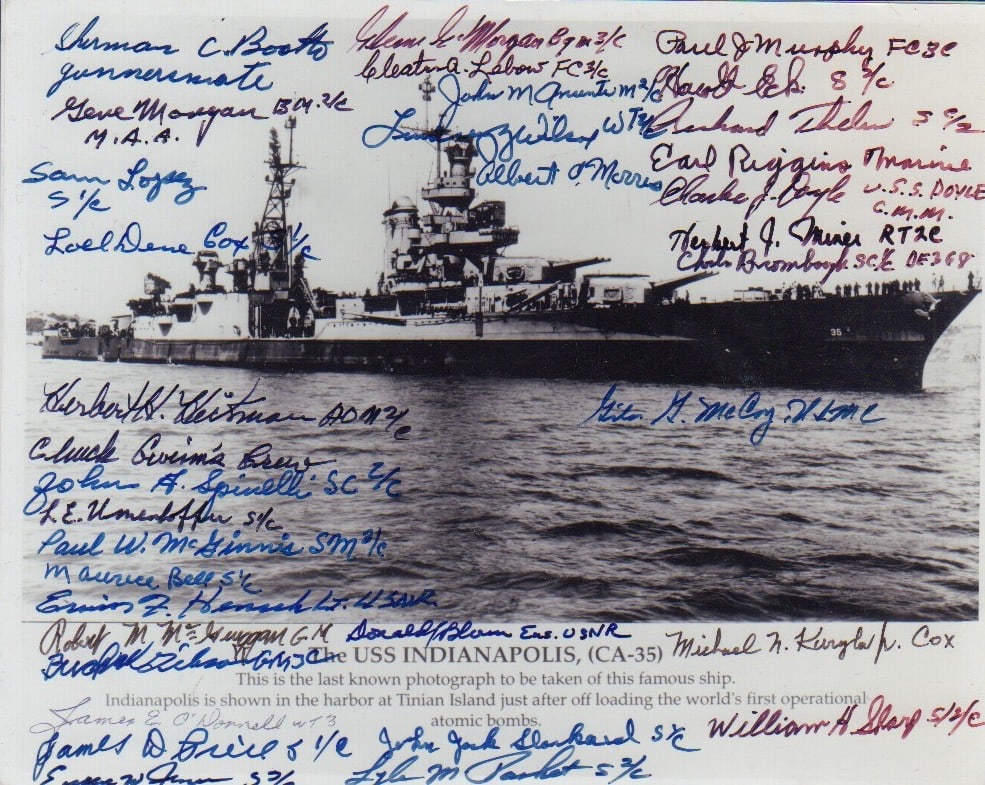 Sherman C. Booth
gunnersmate
Gene Morgan B M 2/c
M.A.A.
Sam Lopez
S 1/c
Loel Dene Cox S 1/c
Glenn G. Morgan BGM 3/c
Cleatus A. Lebow FC 3/c
John M
WT
Albert Morris
Paul J Murphy FC3C
S 2/c
Richard Thelen S 2/c
Earl Riggins Marine
Charles J. Doyle U.S.S. DOYLE
C.M.M.
Herbert J. Miner RT2C
SC 1/c DE368
35
Giles G. McCoy USMC
Herbert H.
Chuck Gwinn's Crew
John A. Spinelli SC 2/c
L.E. Umenhoffer S/c
Paul W. McGinnis SM 3/c
Maurice Bell S1/c
Lt. USNR
Robert M. McGuiggan G.M.
Donald J. Blum Ens. USNR
Michael N. Kuryla Jr. Cox
GM3C
The USS INDIANAPOLIS, (CA-35)
This is the last known photograph to be taken of this famous ship.
Indianapolis is shown in the harbor at Tinian Island just after off loading the world's first operational
atomic bombs.
James E. O'Donnell WT3
William H Sharp S/2/c
James D Price S 1/c
John Jack Slankard S 1/c
S 2/c
Lyle M S 2/c